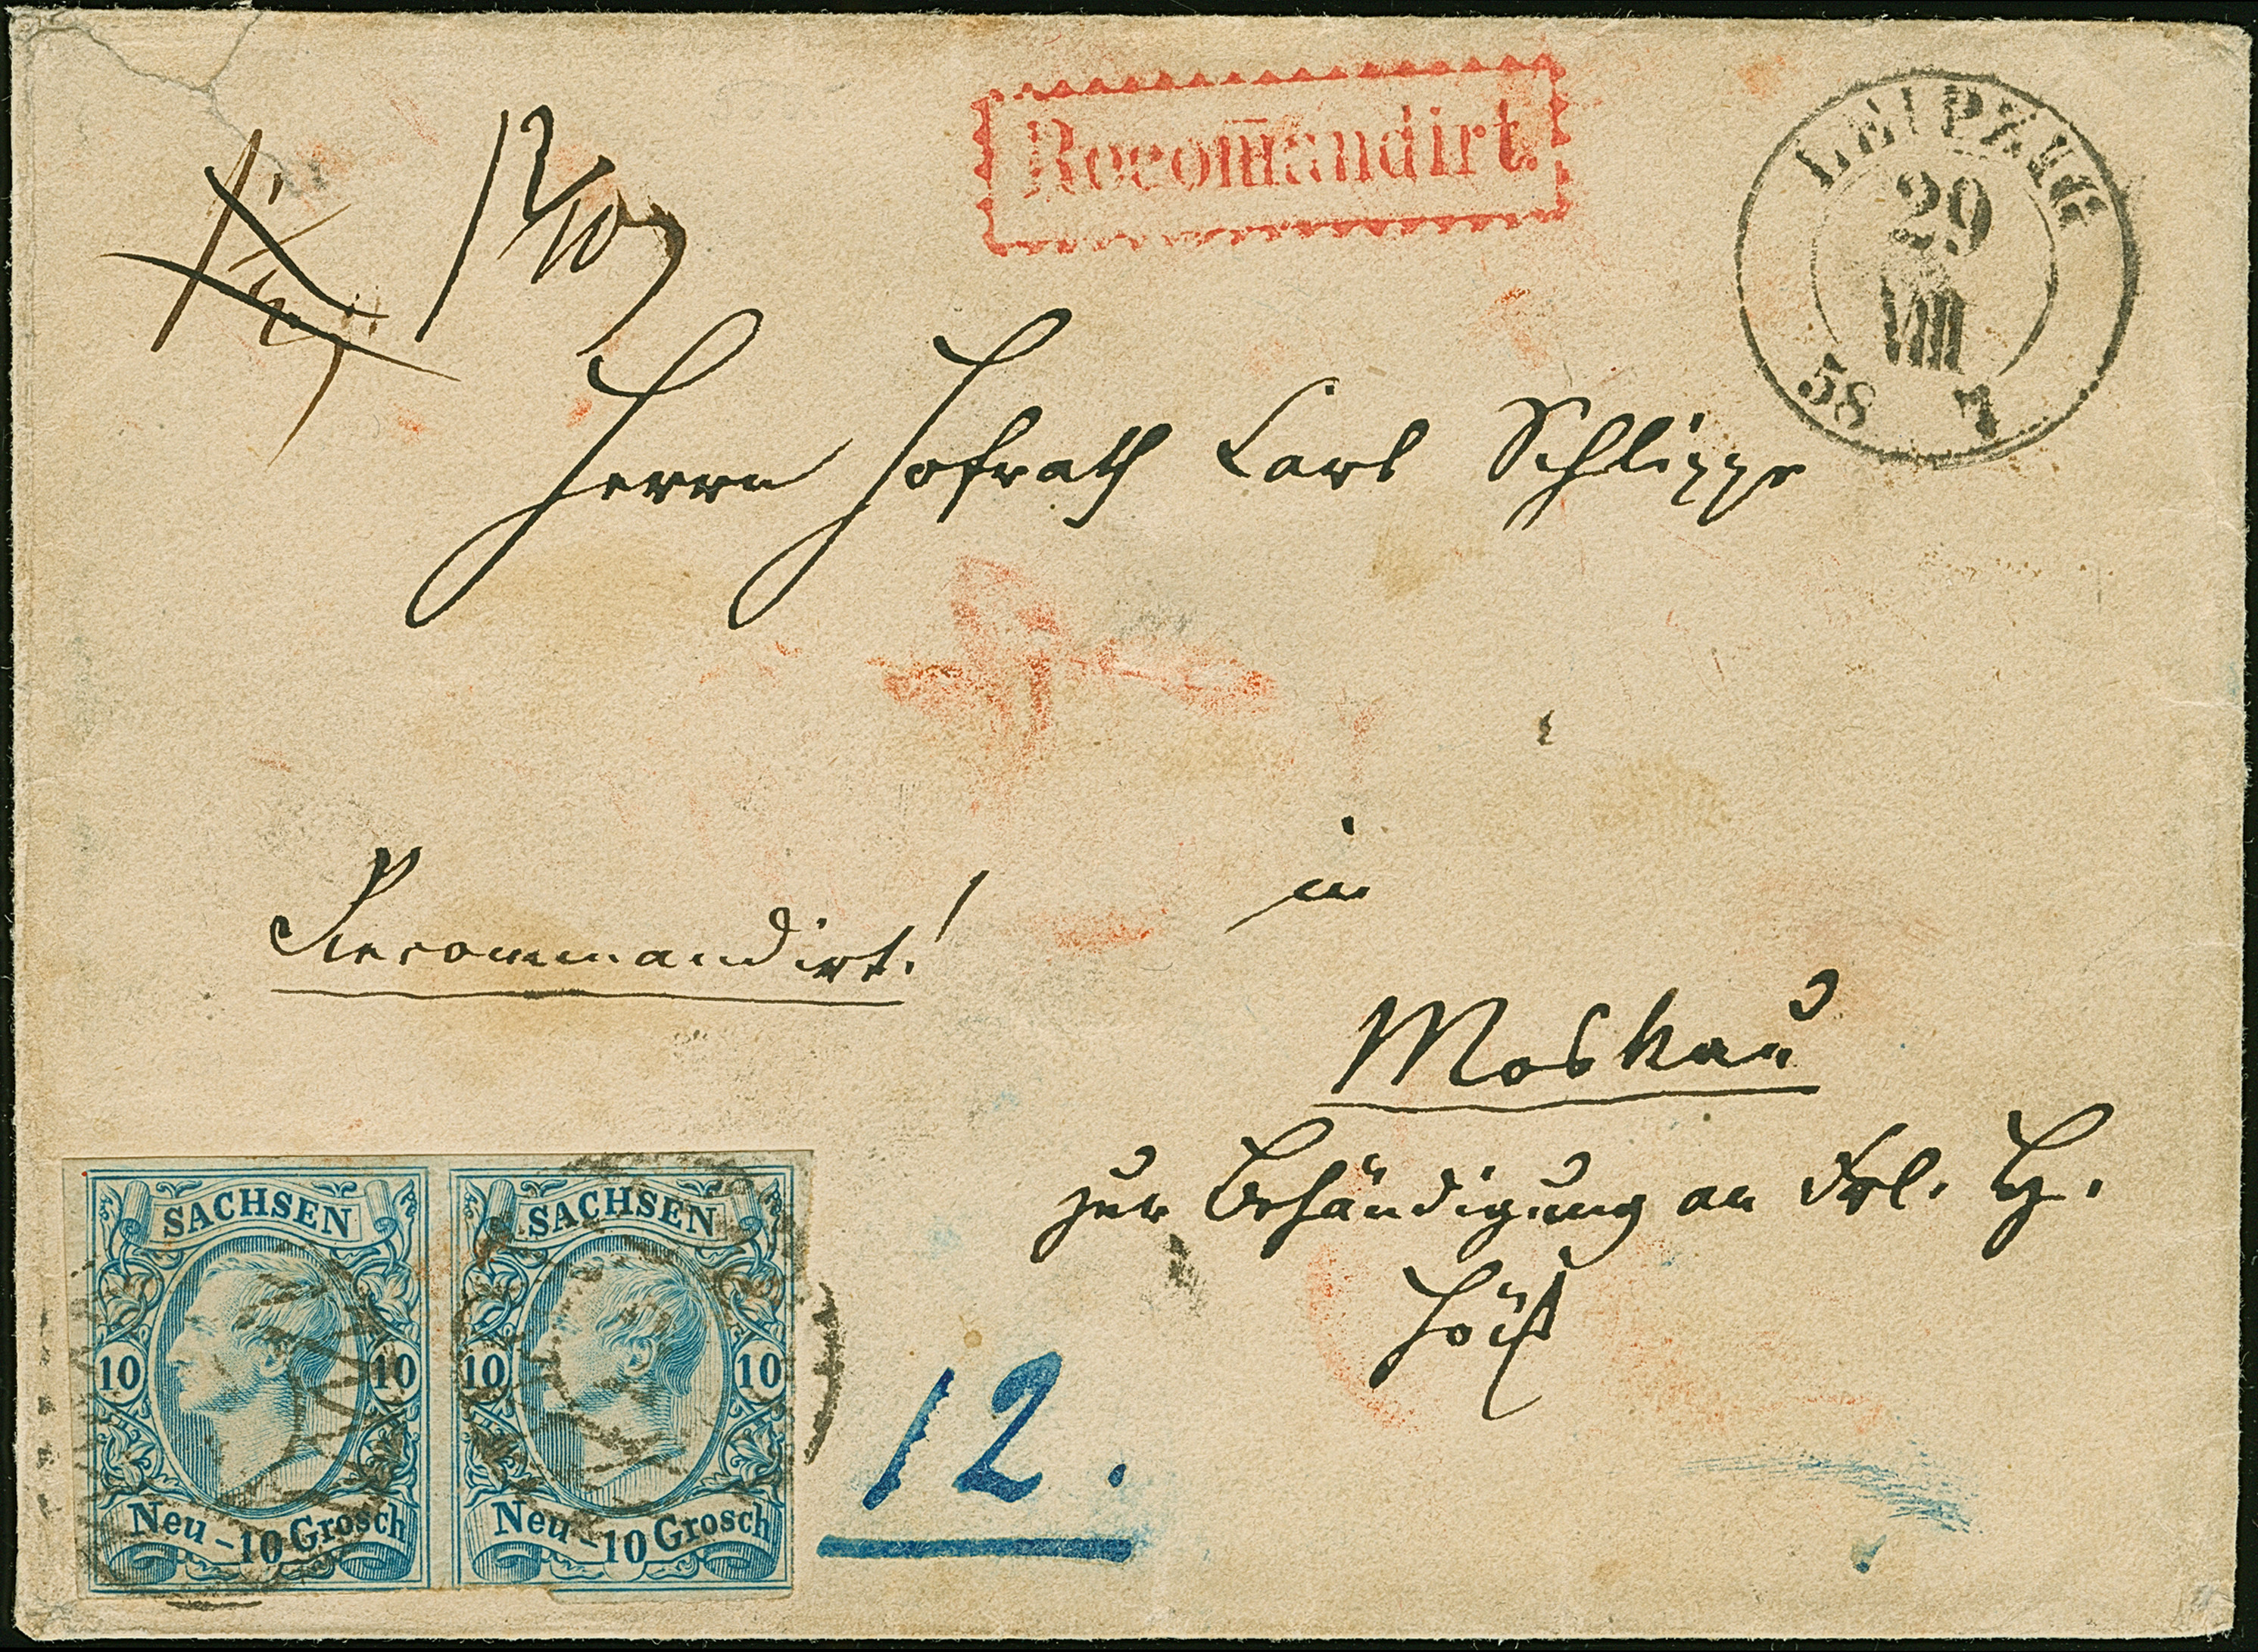 Recom̅andirt.
LEIPZIG
29
VIII
58 7
Herrn Hofrath Carl Schlippe
in
Recommandirt!
Moskau
zur Behändigung an Frl. H.
SACHSEN
10 10
Neu-10 Grosch
SACHSEN
10 10
Neu-10 Grosch
12.